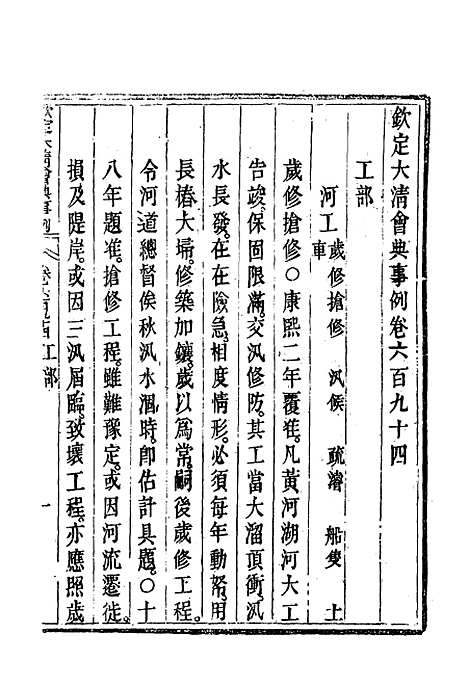 欽定大清會典事例卷六百九十四
工部
河工歲修搶修　汛候　疏濬　船隻　土
車
歲修搶修○康熙二年覆准。凡黃河湖河大工
告竣。保固限滿。交汛修防。其工當大溜頂衝。汛
水長發。在在險急。相度情形。必須每年動帑。用
長樁大埽。修築加鑲。歲以爲常。嗣後歲修工程。
令河道總督俟秋汛水涸時。卽估計具題。○十
八年題准。搶修工程。雖難豫定。或因河流遷徙。
損及隄岸。或因三汛屆臨。致壞工程。亦應照歲
欽定大清會典事例　卷六百九十四工部　一